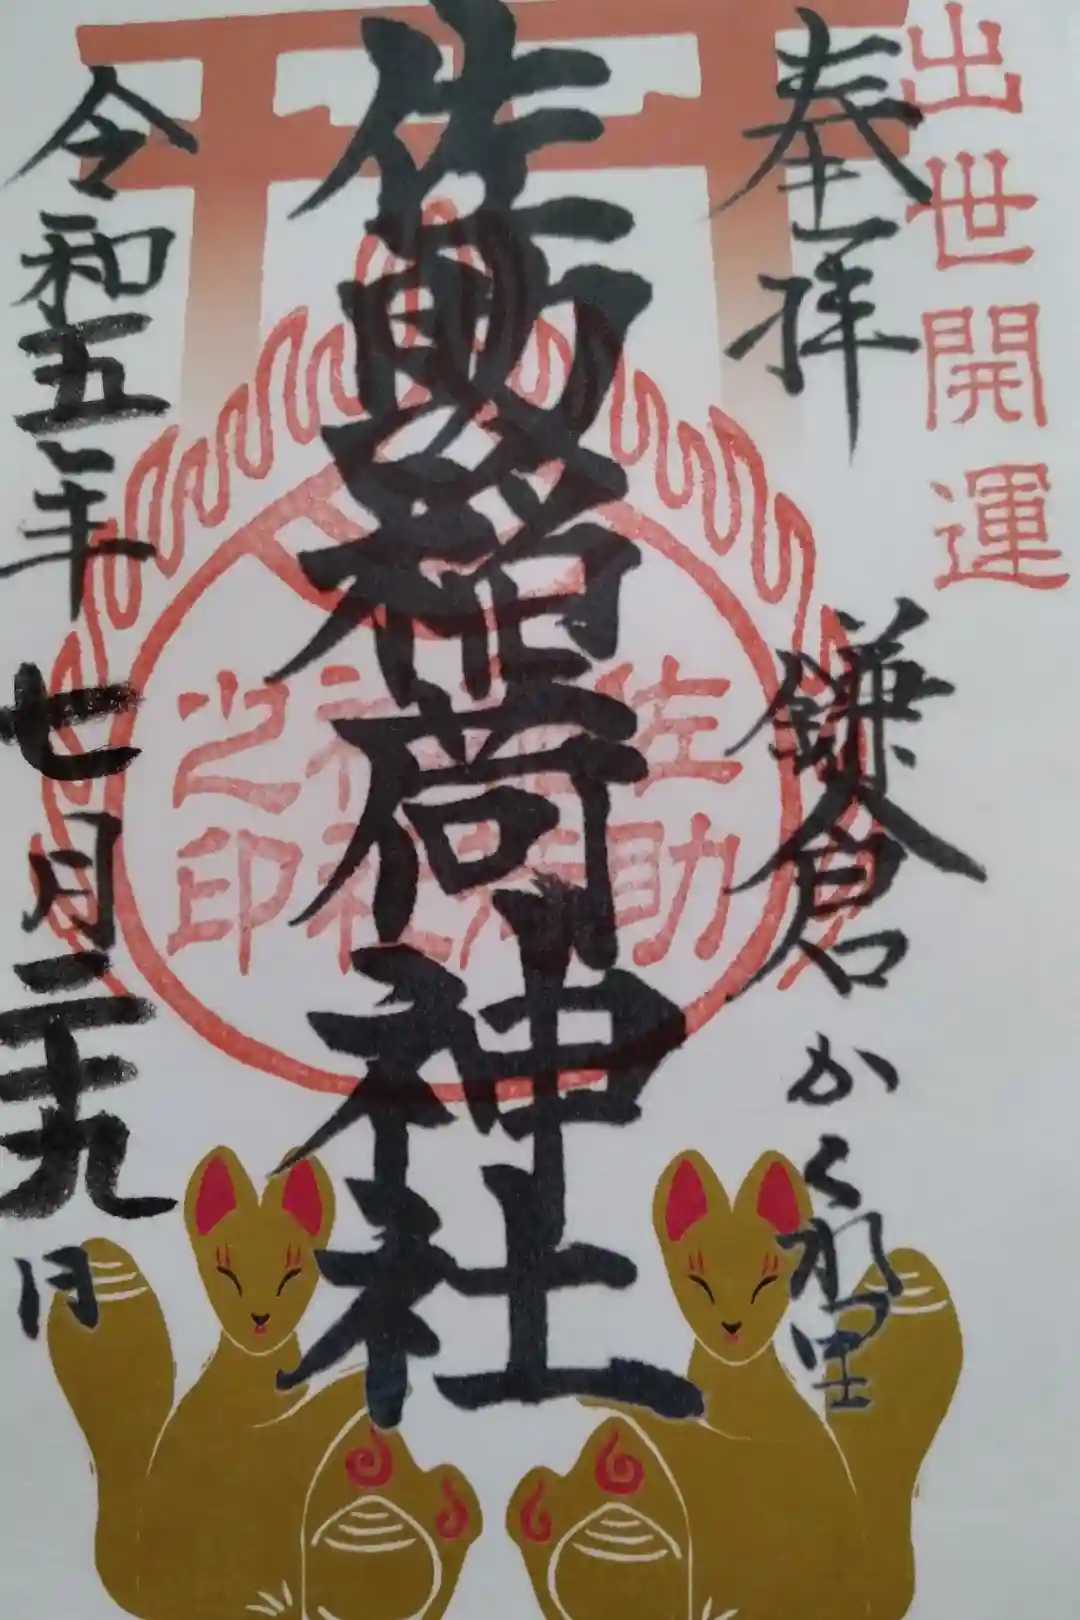 出世開運
奉拝
鎌倉かくれ里
佐助稲荷神社
佐助稲荷神社之印
令和五年七月二十九日